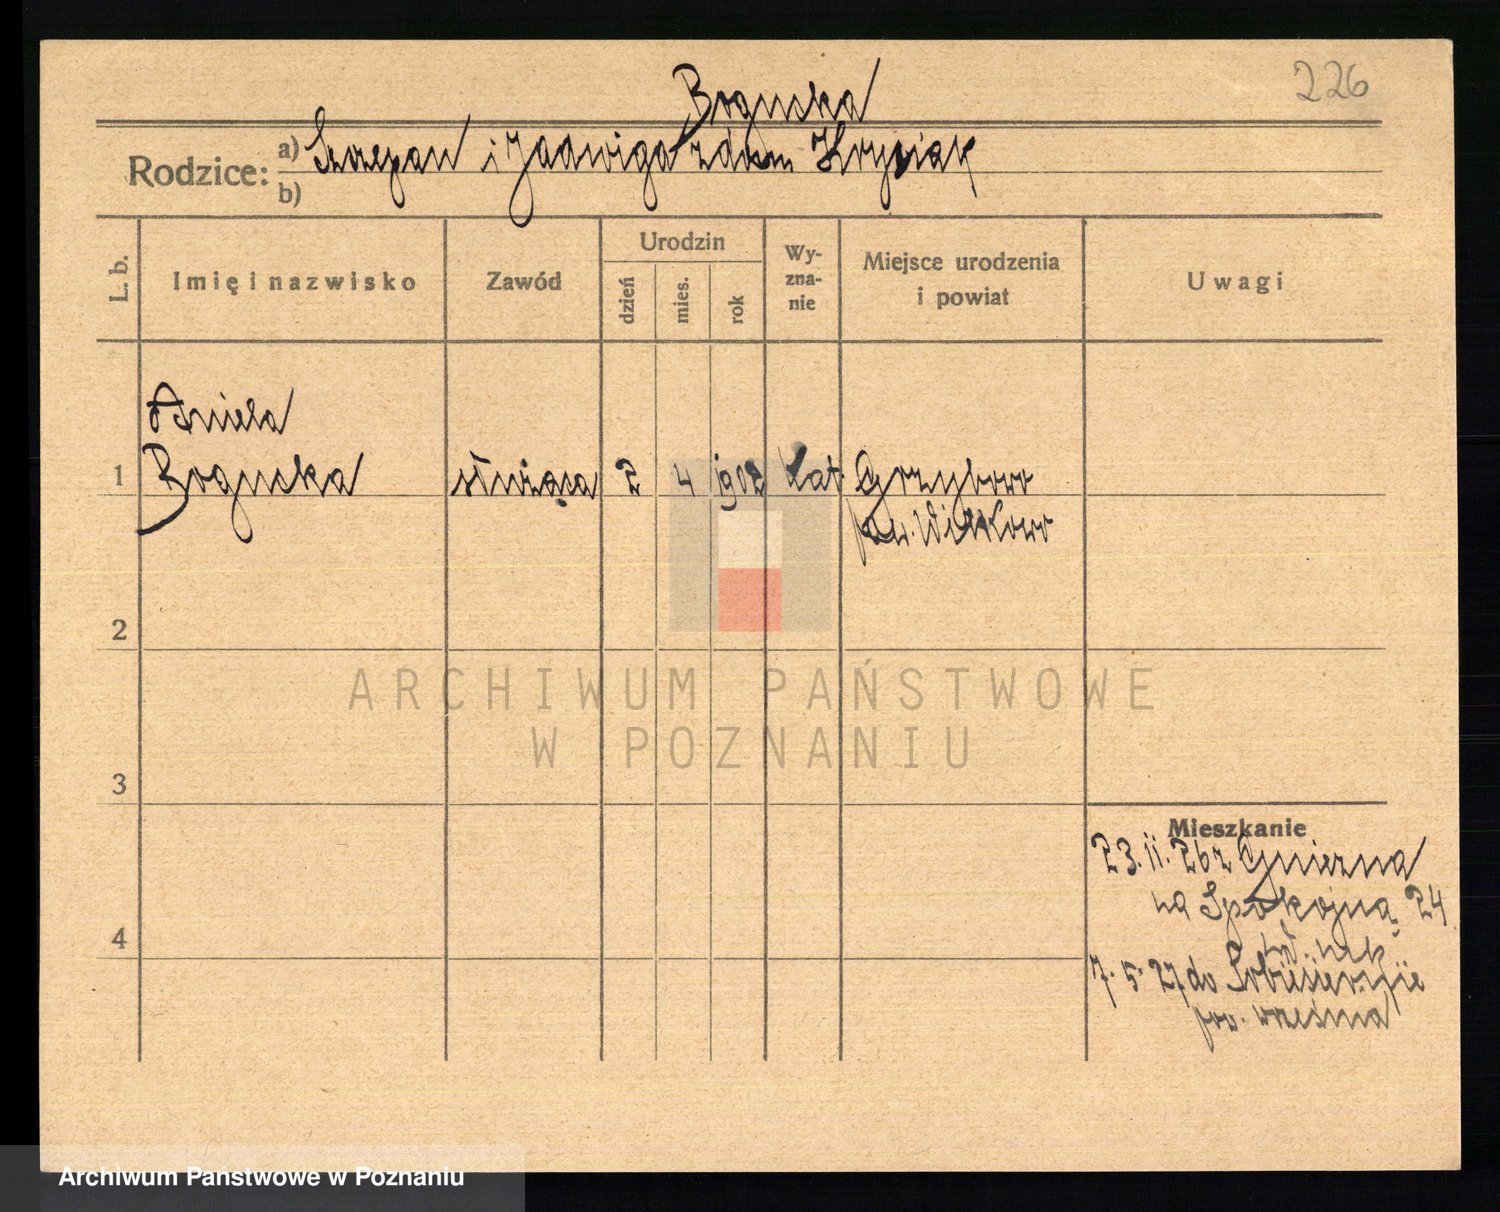 226
Bogucka
Rodzice: a) Szczepan i Jadwiga z dom Krysiak
b)
L. b. Imię i nazwisko Zawód Urodzin dzień mies. rok Wy-zna-nie Miejsce urodzenia i powiat Uwagi
Aniela
1 Bogucka służąca 2 4 1902 kat Grzybowo
pow. Witkowo
2
ARCHIWUM PAŃSTWOWE
W POZNANIU
3
Mieszkanie
23.11.26 z Gniezna
na Spokojną 24
4
7.5.27 do
pow. Września
Archiwum Państwowe w Poznaniu